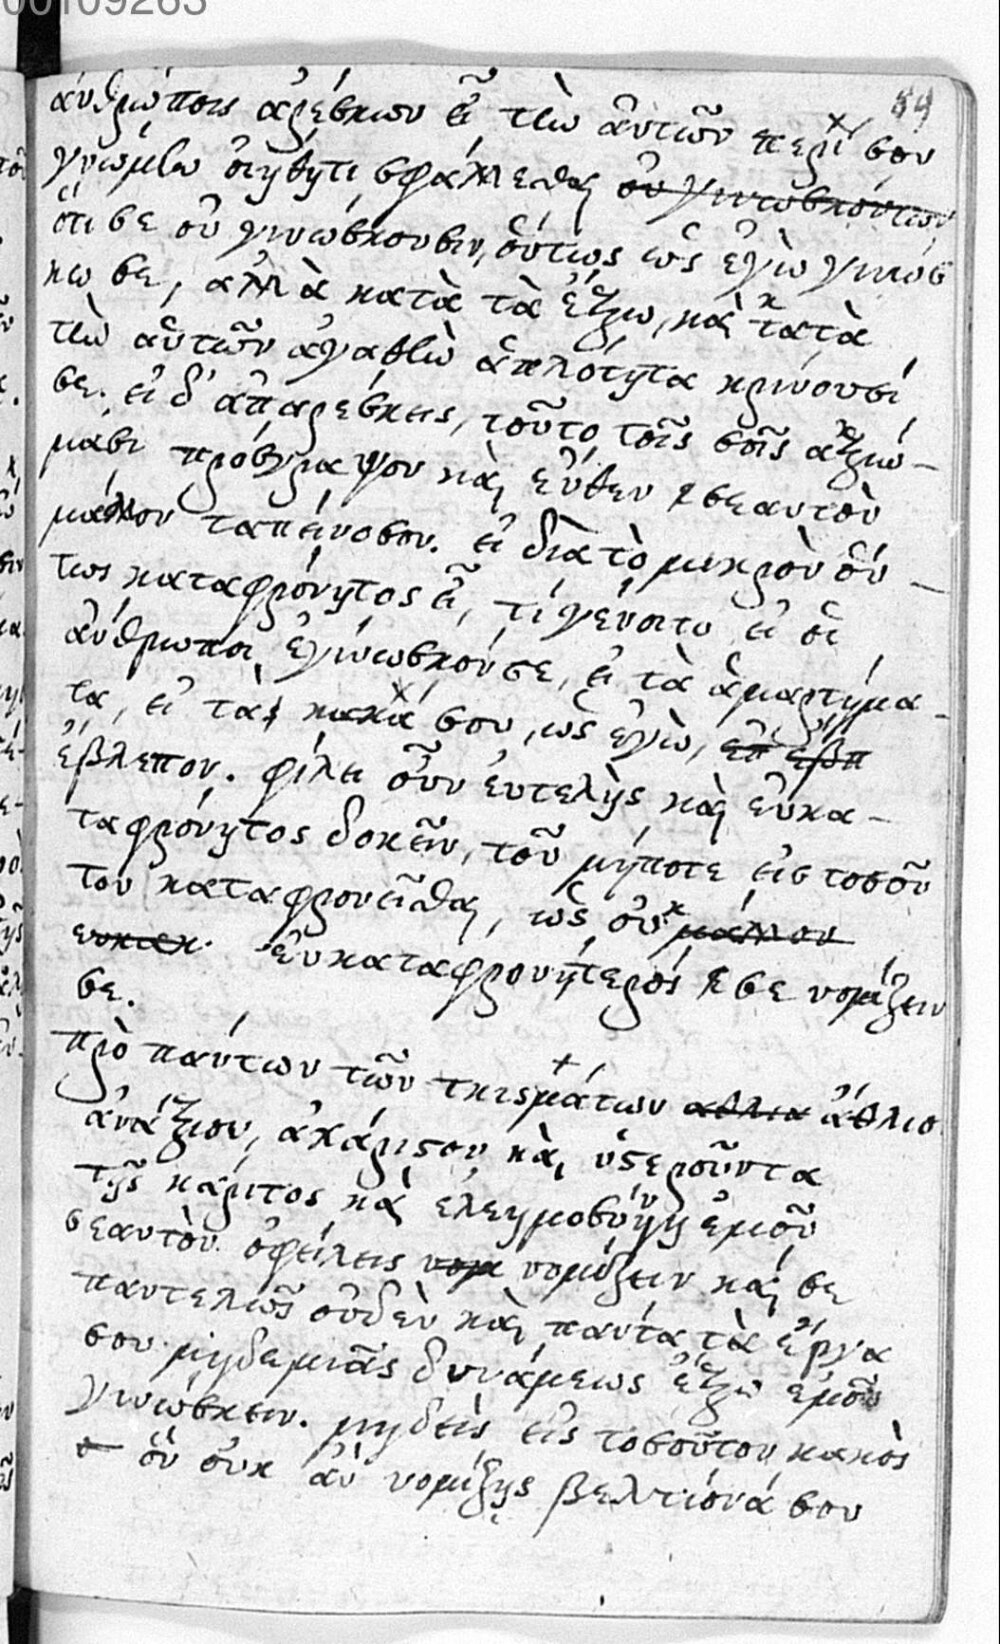 00109263
89
ἀνθρώποις ἀρέσκων εἶ τὴν ἀυτῶν περί σου
γνώμην οιηθητι σφάλλεσθαι ου γινωσκόντων
ὅτι σε οὐ γινώσκουσιν, οὕτως ὡς ἐγὼ γινώσ
κω σε, ἀλλὰ κατὰ τὰ ἔξω, καὶ κατὰ
τὴν αὐτῶν ἀγαθὴν ἁπλότητα κρίνουσί
σε. εἰ δ' ἀπαρέσκεις, τοῦτο τοῖς σοῖς ἀξιώ-
μασι πρόσγραψον καὶ ἔνθεν σεαυτὸν
μάλλον ταπείνοσον. εἰ διὰ τὸ μικρὸν οὕ-
τως καταφρόνητος εἶ, τί γένοιτο εἰ οἱ
ἄνθρωποι ἐγίνωσκόν σε, εἰ τὰ ἁμαρτήμα-
τα, εἰ τὰ κακά σου, ὡς ἐγὼ, επ εβπ
ἔβλεπον. φίλει οὖν ἐυτελὴς καὶ εὐκα-
ταφρόνητος δοκεῖν, τοῦ μήποτε εἰς τοσοῦ
τον καταφρονεῖσθαι, ὡς οὐκ μάλλον
ευκατ. ἐυκαταφρονήτερός σε νομίζειν
σε.
πρὸ πάντων τῶν κτισμάτων αθλια ἄθλιο
ἀνάξιον, ἀχάριστον καὶ ὑστεροῦντα
τῆς χάριτος καὶ ἐλεημοσύνης ἐμοῦ
σεαυτὸν ὀφείλεις νομ νομίζειν καί σε
παντελῶς οὐδὲν καὶ πάντα τὰ ἔργα
σου μηδεμιᾶς δυνάμεως ἔξω ἐμοῦ
γινώσκειν. μηδεὶς εἰς τοσοῦτον κακὸς
ὃν οὐκ ἂν νομίζῃς βελτίονά σου